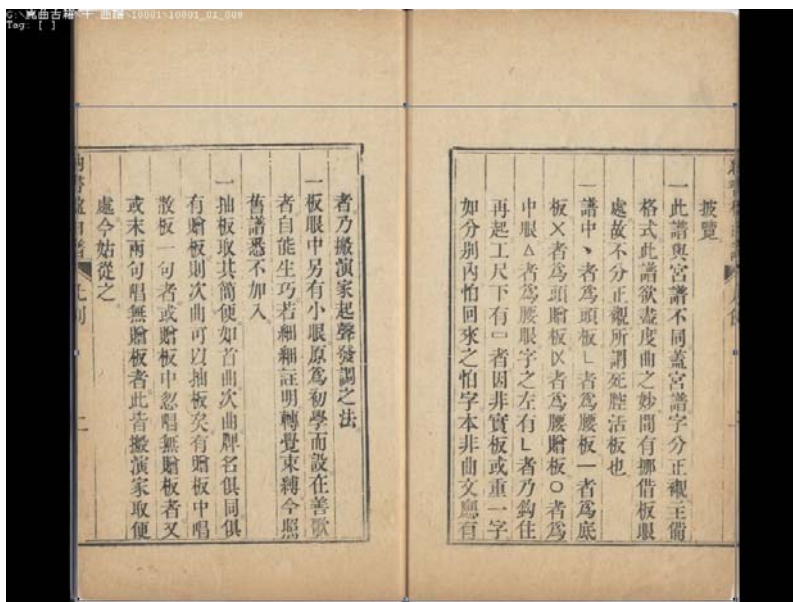 G:\崑曲古籍\十 曲譜\10001\10001_01_009
Tag: [ ]
披覽
一此譜與宮譜不同蓋宮譜字分正襯主備
格式此譜欲盡度曲之妙間有挪借板眼
處故不分正襯所謂死腔活板也
一譜中、者爲頭板乚者爲腰板一者爲底
板×者爲頭贈板者爲腰贈板○者爲
中眼△者爲腰眼字之左有乚者乃鈎住
再起工尺下有□者因非實板或重一字
如分別內怕回來之怕字本非曲文應有
者乃搬演家起聲發調之法
一板眼中另有小眼原爲初學而設在善歌
者自能生巧若細細註明轉覺束縛今照
舊譜悉不加入
一抽板取其簡便如首曲次曲牌名俱同俱
有贈板則次曲可以抽板矣有贈板中唱
散板一句者或贈板中忽唱無贈板者又
或末兩句唱無贈板者此皆搬演家取便
處今姑從之
凡例
二